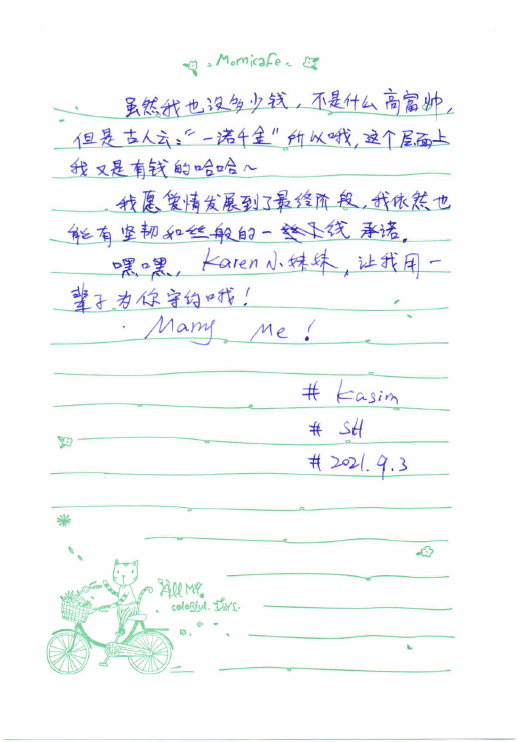 Momicafe
虽然我也没多少钱，不是什么高富帅，
但是古人云：“一诺千金”所以哦，这个层面上
我又是有钱的哈哈～
我愿爱情发展到了最终阶段，我依然也
能有坚韧如丝般的一线承诺。
嘿嘿，Karen小妹妹，让我用一
辈子为你守约哦！
Marry Me！
# Kasim
# SH
# 2021.9.3
All My
colorful Days.